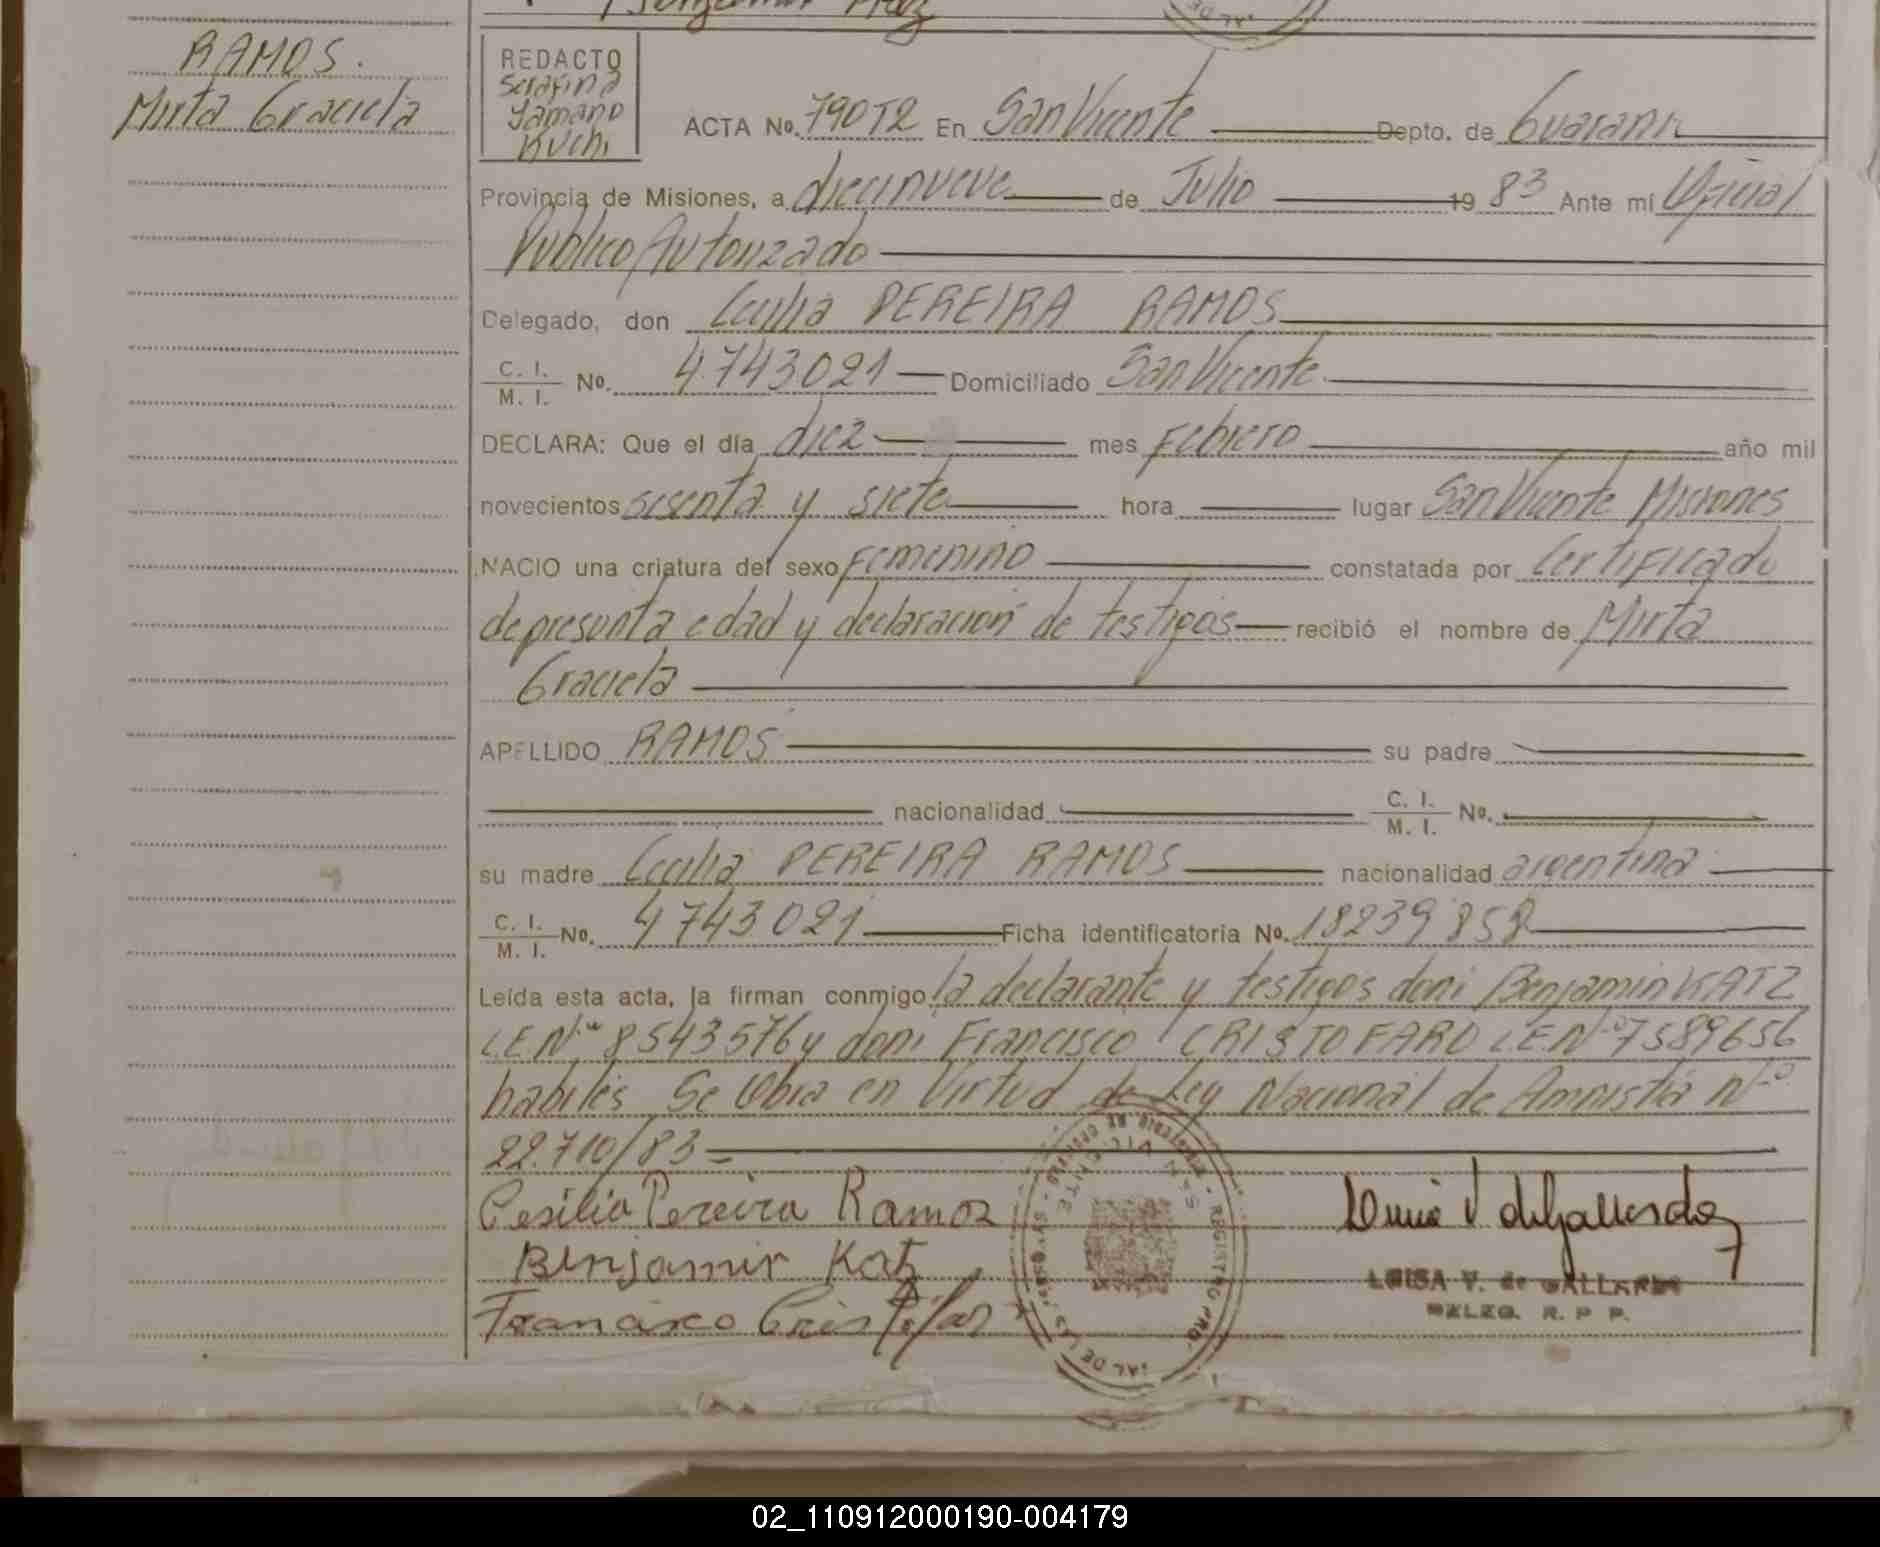 RAMOS.
Mirta Graciela
REDACTO
Serafina
ACTA No. 790T2 En San Vicente Depto. de Guarani
Provincia de Misiones, a diecinueve de Julio 19 83 Ante mí Oficial
Publico Autorizado
Delegado, don Cecilia PEREIRA RAMOS
C. I. / M. I. No. 4.743.021 Domiciliado San Vicente
DECLARA: Que el día diez mes Febrero año mil
novecientos sesenta y siete hora lugar San Vicente Misiones
NACIO una criatura del sexo Femenino constatada por Certificado
de presunta edad y declaración de testigos recibió el nombre de Mirta
Graciela
APELLIDO RAMOS su padre
nacionalidad C. I. / M. I. No.
su madre Cecilia PEREIRA RAMOS nacionalidad argentina
C. I. / M. I. No. 4743.021 Ficha identificatoria No. 18239858
Leída esta acta, la firman conmigo la declarante y testigos don: Benjamin KATZ
L.E.Nº 8543576 y don: Francisco CRISTOFARO L.E.Nº 7589656
habiles Se Obra en Virtud de Ley Nacional de Amnistia Nº
22.710/83=
Cesilia Pereira Ramoz
Benjamin Katz
Francisco
SAN VICENTE
LUISA V. de GALLARDO
DELEG. R. P P.
02_110912000190-004179